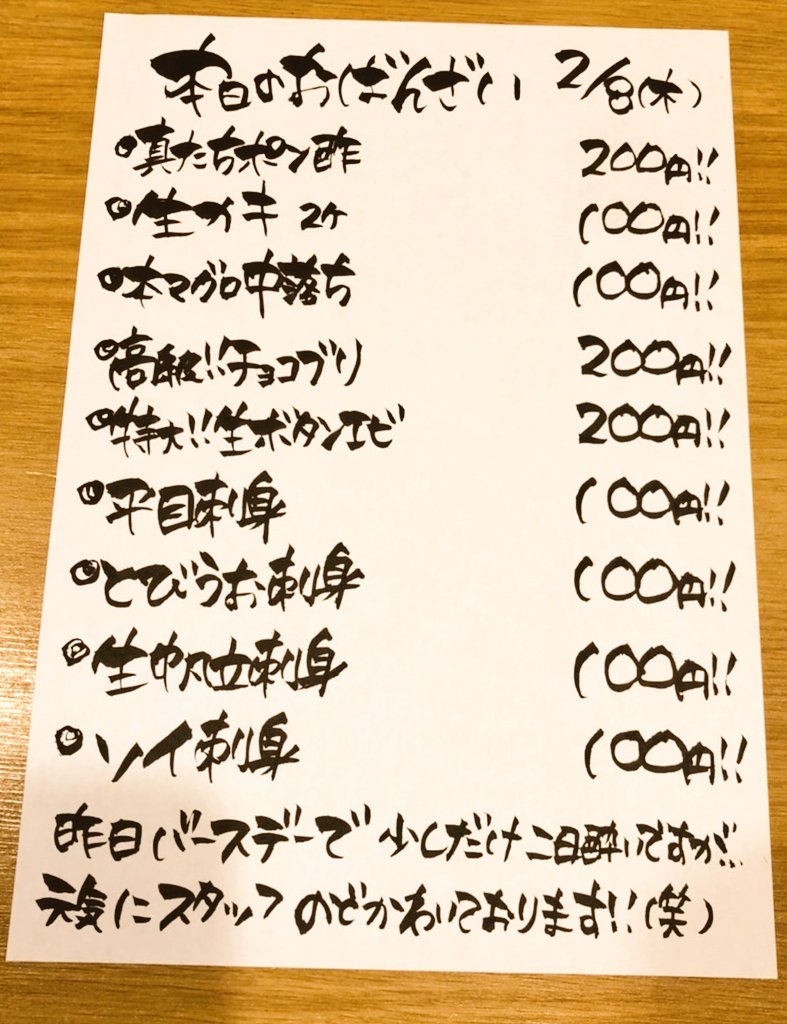 本日のおばんざい 2/8(木)
◎真たちポン酢 200円!!
◎生カキ 2ケ 100円!!
◎本マグロ中落ち 100円!!
◎高級!!チョコブリ 200円!!
◎特大!!生ボタンエビ 200円!!
◎平目刺身 100円!!
◎とびうお刺身 100円!!
◎生帆立刺身 100円!!
◎ソイ刺身 100円!!
昨日バースデーで 少しだけ二日酔いですが!!
元気にスタッフ のどかわいております!!(笑)